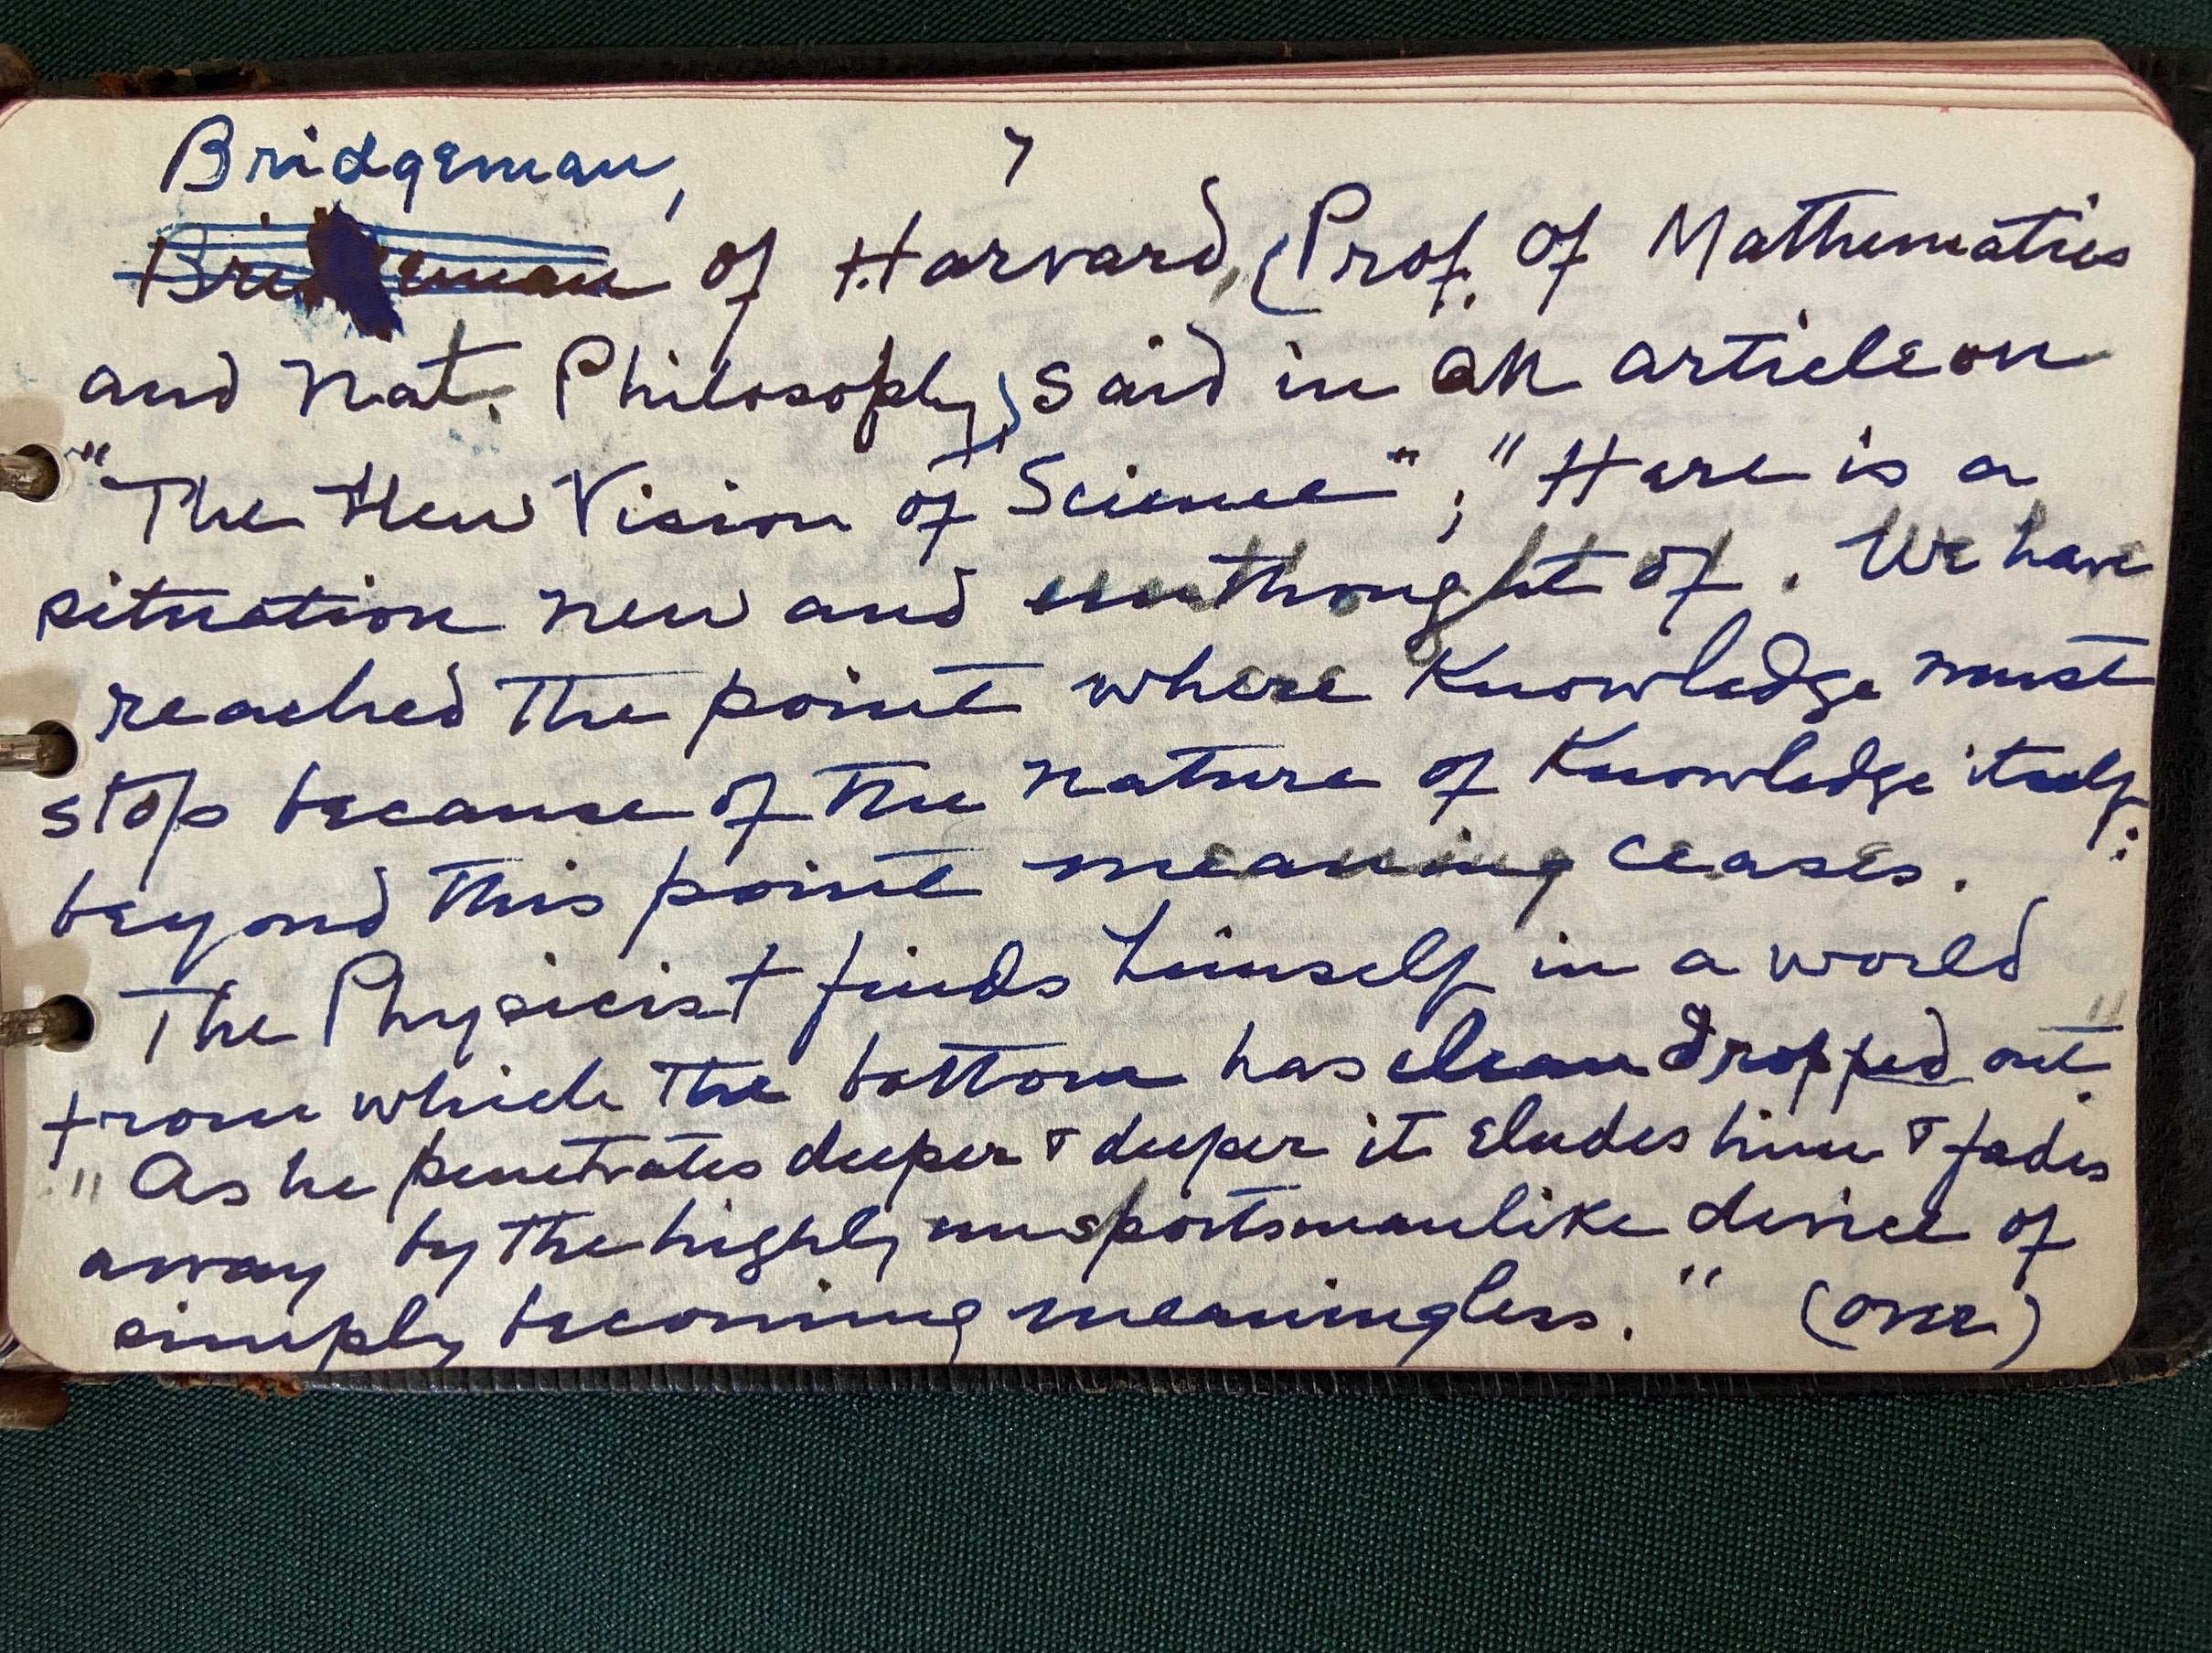 7
Bridgeman,
of Harvard, (Prof. of Mathematics
and Nat. Philosophy) said in an article on
"The New Vision of Science"; "Here is a
situation new and unthought of. We have
reached the point where Knowledge must
stop because of the nature of Knowledge itself:
beyond this point meaning ceases.
The Physicist finds himself in a world
from which the bottom has clean dropped out."
"As he penetrates deeper & deeper it eludes him & fades
away by the highly unsportsmanlike device of
simply becoming meaningless." (over)